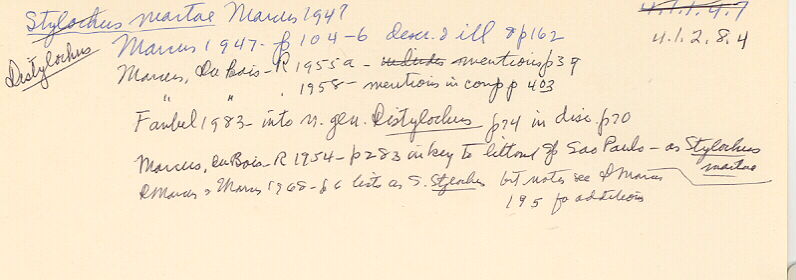 Stylochus martae Marcus 1947
4.1.1.4.7
4.1.2.8.4
Distylochus
Marcus 1947- p 104-6 descr. & ill & p162
Marcus, du Bois-R 1955a - includes mentions p39
" " , 1958 - mentions in comp p 403
Faubel 1983 - into n. gen. Distylochus p74 in disc. p70
Marcus, du Bois-R 1954 - p283 in key to littoral of Sao Paulo - as Stylochus martae
E Marcus & Marcus 1968 - p 6 lists as S. Stylochus but notes see E Marcus
195 for additions